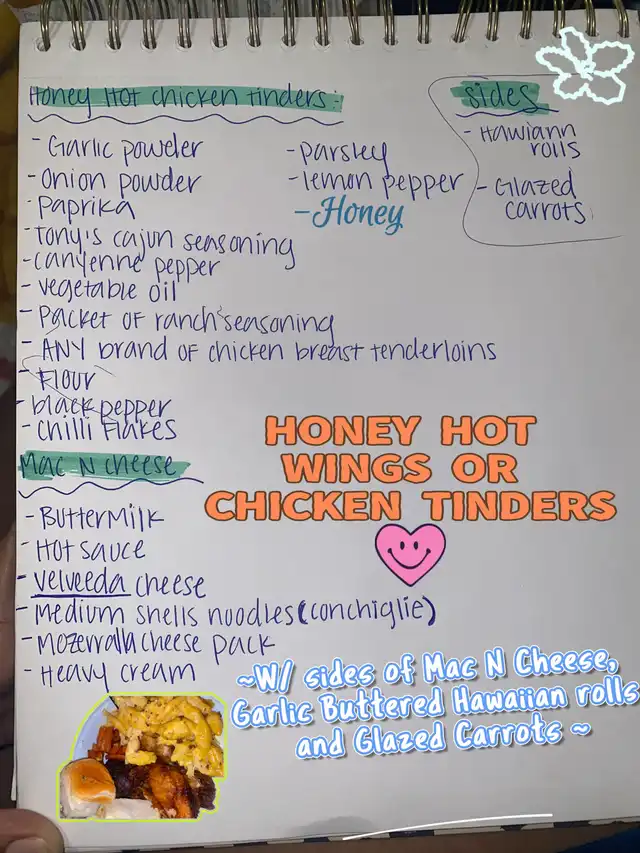 Honey Hot chicken tinders:-
- Garlic powder
- Onion powder
- Paprika
- Tony's cajun seasoning
- canyenne pepper
- vegetable oil
- Packet of ranch seasoning
- ANY brand of chicken breast tenderloins
- Flour
- black pepper
- chilli Flakes
- parsley
- lemon pepper
- Honey
sides
- Hawiann
rolls
- Glazed
carrots
Mac N cheese
- Buttermilk
- Hot sauce
- velveeda cheese
- Medium shells noodles (conchiglie)
- Mozerralla cheese pack
- Heavy cream
HONEY HOT
WINGS OR
CHICKEN TINDERS
~W/ sides of Mac N Cheese,
Garlic Buttered Hawaiian rolls
and Glazed Carrots ~